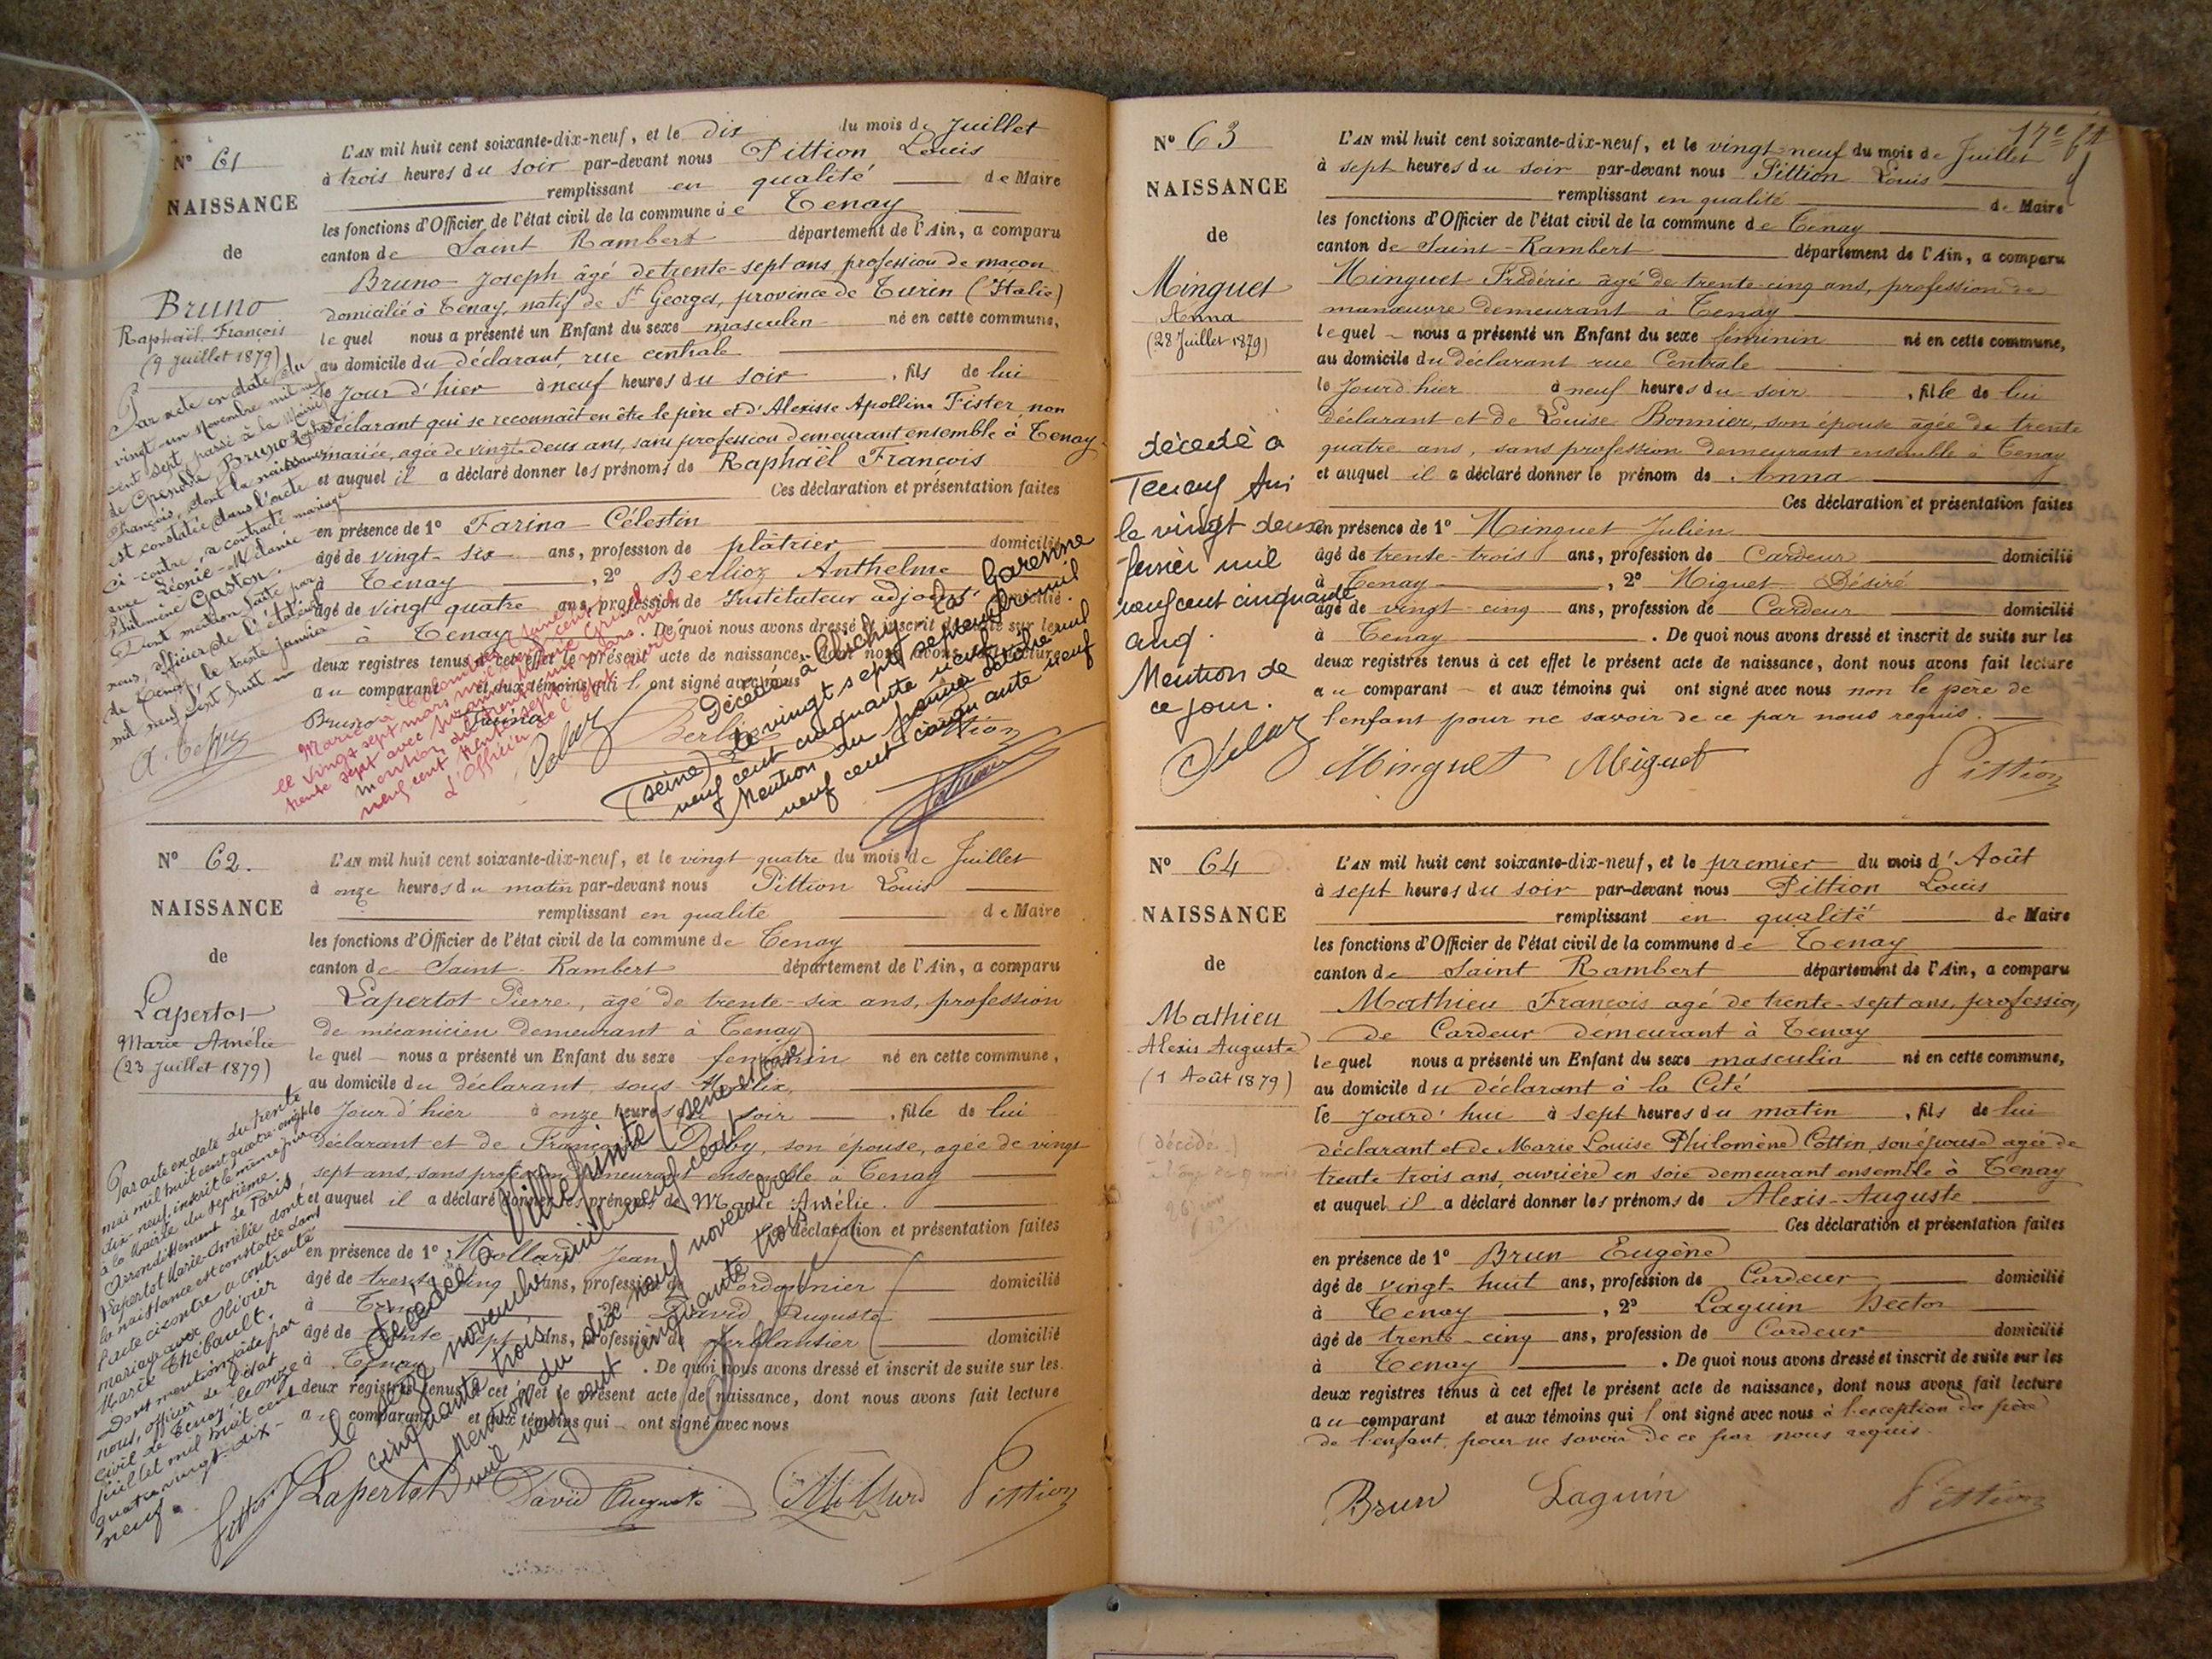 N° 61
NAISSANCE
de
Bruno
Raphaël François
(9 Juillet 1879)
L'AN mil huit cent soixante-dix-neuf, et le dix du mois de Juillet
à trois heures du soir par-devant nous Pittion Louis
remplissant en qualité de Maire
les fonctions d'Officier de l'état civil de la commune de Tenay
canton de Saint Rambert département de l'Ain, a comparu
Bruno Joseph âgé de trente-sept ans, profession de maçon
domicilié à Tenay, natif de St Georges, province de Turin (Italie)
lequel nous a présenté un Enfant du sexe masculin né en cette commune,
au domicile du déclarant, rue centrale
le Jour d'hier à neuf heures du soir, fils de lui
déclarant qui se reconnaît en être le père et d'Alexisse Apolline Fister, non
mariée, agée de vingt-deux ans, sans profession demeurant ensemble à Tenay
et auquel il a déclaré donner les prénoms de Raphaël François
Ces déclaration et présentation faites
en présence de 1° Farina Célestin
âgé de vingt-six ans, profession de plâtrier domicilié
à Tenay, 2° Berlioz Anthelme
âgé de vingt quatre ans, profession de Instituteur adjoint domicilié
à Tenay. De quoi nous avons dressé et inscrit de suite sur les
deux registres tenus à cet effet le présent acte de naissance, dont nous avons fait lecture
au comparant et aux témoins qui l'ont signé avec nous
Par acte en date du
vingt-un Novembre mil neuf
cent sept, passé à la Mairie
de Grenoble, Bruno Raphaël
François, dont la naissance
est constatée dans l'acte
ci-contre, a contracté mariage
avec Léonie-Mélanie
Philomène Gaston.
Dont mention faite par
nous, officier de l'état civil
de Tenay, le trente janvier
mil neuf cent huit
Marié à Colombes (Seine)
le vingt sept mars mil neuf cent
trente sept avec
Mention du trente mars mil
neuf cent trente sept
L'Officier de l'état civil
Décédé à Clichy la Garenne
(seine) le vingt sept septembre mil
neuf cent cinquante neuf.
Mention du premier octobre mil
neuf cent cinquante neuf
Bruno Farina Berlioz Pittion
N° 62.
NAISSANCE
de
Lapertot
Marie Amélie
(23 Juillet 1879)
L'AN mil huit cent soixante-dix-neuf, et le vingt quatre du mois de Juillet
à onze heures du matin par-devant nous Pittion Louis
remplissant en qualité de Maire
les fonctions d'Officier de l'état civil de la commune de Tenay
canton de Saint-Rambert département de l'Ain, a comparu
Lapertot Pierre, âgé de trente-six ans, profession
de mécanicien demeurant à Tenay
lequel nous a présenté un Enfant du sexe féminin né en cette commune,
au domicile du déclarant, sous
le Jour d'hier à onze heures du soir, fille de lui
déclarant et de Françoise Doby, son épouse, agée de vingt
sept ans, sans profession demeurant ensemble à Tenay
et auquel il a déclaré donner les prénoms de Marie Amélie.
Ces déclaration et présentation faites
en présence de 1° Mollard Jean
âgé de trente cinq ans, profession de Cordonnier domicilié
à Tenay, 2° David Auguste
âgé de trente-sept ans, profession de Ferblantier domicilié
à Tenay. De quoi nous avons dressé et inscrit de suite sur les
deux registres tenus à cet effet le présent acte de naissance, dont nous avons fait lecture
au comparant et aux témoins qui ont signé avec nous
Par acte en date du trente
mai mil huit cent quatre-vingt
dix-neuf, inscrit le même jour
à la Mairie du septième
Arrondissement de Paris,
Lapertot Marie-Amélie dont
la naissance est constatée dans
l'acte ci-contre a contracté
mariage avec Olivier
Marie Thébault.
Dont mention faite par
nous, officier de l'état
civil de Tenay, le onze
juillet mil huit cent
quatre-vingt-dix-
neuf.
Décédée à Villepinte (seine et Oise)
le seize novembre mil neuf cent
cinquante trois.
Mention du dix neuf novembre
mil neuf cent cinquante trois
Lapertot David Auguste Mollard Pittion
17e
N° 63
NAISSANCE
de
Minguet
Anna
(28 Juillet 1879)
L'AN mil huit cent soixante-dix-neuf, et le vingt-neuf du mois de Juillet
à sept heures du soir par-devant nous Pittion Louis
remplissant en qualité de Maire
les fonctions d'Officier de l'état civil de la commune de Tenay
canton de Saint-Rambert département de l'Ain, a comparu
Minguet Frédéric âgé de trente-cinq ans, profession de
manœuvre demeurant à Tenay
lequel nous a présenté un Enfant du sexe féminin né en cette commune,
au domicile du déclarant rue Centrale
le Jourd'hier à neuf heures du soir, fille de lui
déclarant et de Louise Bonnier, son épouse agée de trente
quatre ans, sans profession demeurant ensemble à Tenay
et auquel il a déclaré donner le prénom de Anna
Ces déclaration et présentation faites
en présence de 1° Minguet Julien
âgé de trente-trois ans, profession de Cardeur domicilié
à Tenay, 2° Miguet Désiré
âgé de vingt-cinq ans, profession de Cardeur domicilié
à Tenay. De quoi nous avons dressé et inscrit de suite sur les
deux registres tenus à cet effet le présent acte de naissance, dont nous avons fait lecture
au comparant et aux témoins qui ont signé avec nous non le père de
l'enfant pour ne savoir de ce par nous requis.
décédé à
Tenay Ain
le vingt deux
février mil
neuf cent cinquante
cinq.
Mention de
ce jour.
Minguet Miguet Pittion
N° 64
NAISSANCE
de
Mathieu
Alexis Auguste
(1 Août 1879)
L'AN mil huit cent soixante-dix-neuf, et le premier du mois d'Août
à sept heures du soir par-devant nous Pittion Louis
remplissant en qualité de Maire
les fonctions d'Officier de l'état civil de la commune de Tenay
canton de Saint Rambert département de l'Ain, a comparu
Mathieu François agé de trente-sept ans, profession
de Cardeur demeurant à Tenay
lequel nous a présenté un Enfant du sexe masculin né en cette commune,
au domicile du déclarant à la Cité
le Jourd'hui à sept heures du matin, fils de lui
déclarant et de Marie Louise Philomène Cottin, son épouse agée de
trente trois ans, ouvrière en soie demeurant ensemble à Tenay
et auquel il a déclaré donner les prénoms de Alexis-Auguste
Ces déclaration et présentation faites
en présence de 1° Brun Eugène
âgé de vingt-huit ans, profession de Cardeur domicilié
à Tenay, 2° Laguin Hector
âgé de trente-cinq ans, profession de Cardeur domicilié
à Tenay. De quoi nous avons dressé et inscrit de suite sur les
deux registres tenus à cet effet le présent acte de naissance, dont nous avons fait lecture
au comparant et aux témoins qui l'ont signé avec nous à l'exception du père
de l'enfant, pour ne savoir de ce par nous requis.
(décédé)
Brun Laguin Pittion